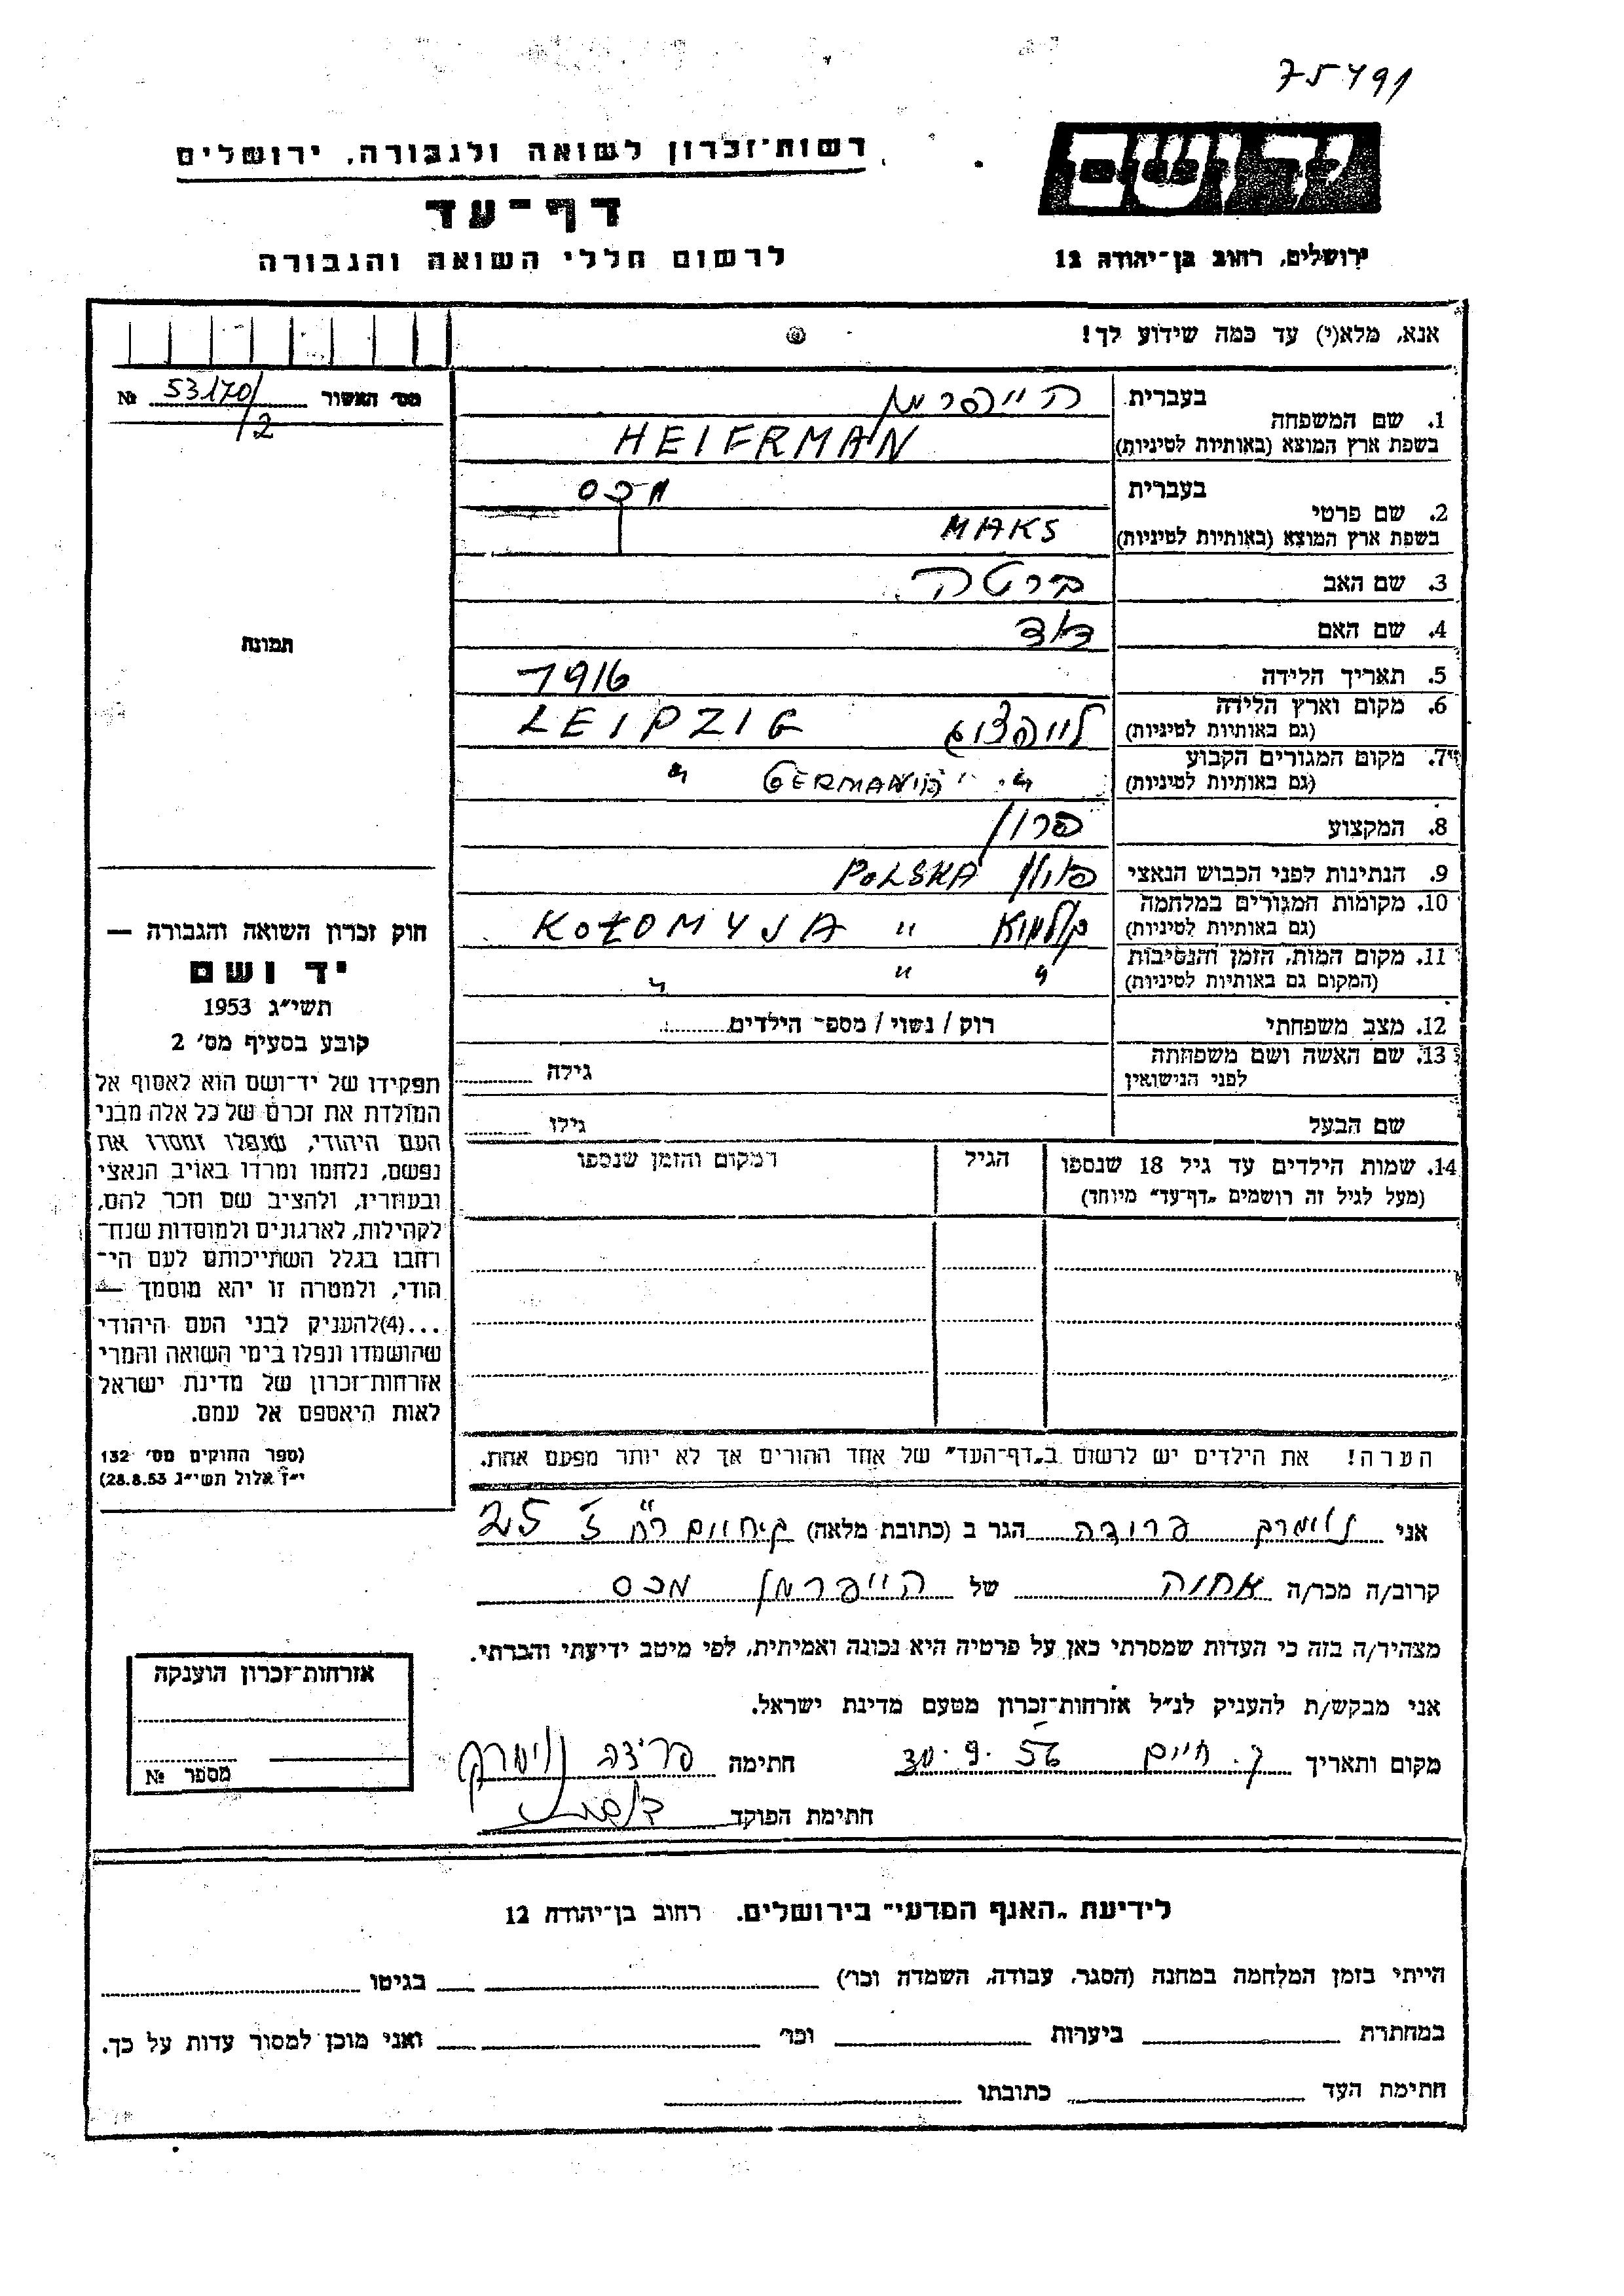 75491
יד ושם
רשות־זכרון לשואה ולגבורה, ירושלים
דף־עד
לרשום חללי השואה והגבורה
ירושלים, רחוב בן־יהודה 12
אנא, מלא(י) עד כמה שידוע לך!
מס׳ האשור 53170/12 №
1. שם המשפחה
בעברית הייפרמן
בשפת ארץ המוצא (באותיות לטיניות) HEIFRMAN
2. שם פרטי
בעברית מכס
בשפת ארץ המוצא (באותיות לטיניות) MAKS
3. שם האב ברטה
4. שם האם דוד
5. תאריך הלידה 1916
6. מקום וארץ הלידה
(גם באותיות לטיניות) לייפציג LEIPZIG
7. מקום המגורים הקבוע
(גם באותיות לטיניות) " GERMANIJ "
8. המקצוע
9. הנתינות לפני הכבוש הנאצי פולין POLSKA
10. מקומות המגורים במלחמה
(גם באותיות לטיניות) " KOŁOMYJA
11. מקום המות, הזמן והנסיבות
(המקום גם באותיות לטיניות) " " "
12. מצב משפחתי רוק / נשוי / מספר הילדים
13. שם האשה ושם משפחתה
לפני הנישואין גילה
שם הבעל גילו
14. שמות הילדים עד גיל 18 שנספו הגיל המקום והזמן שנספו
(מעל לגיל זה רושמים „דף־עד" מיוחד)
הערה! את הילדים יש לרשום ב„דף־העד" של אחד ההורים אך לא יותר מפעם אחת.
תמונה
חוק זכרון השואה והגבורה —
יד ושם
תשי״ג 1953
קובע בסעיף מס׳ 2
תפקידו של יד־ושם הוא לאסוף אל
המולדת את זכרם של כל אלה מבני
העם היהודי, שנפלו ומסרו את
נפשם, נלחמו ומרדו באויב הנאצי
ובעוזריו, ולהציב שם וזכר להם,
לקהילות, לארגונים ולמוסדות שנח־
רבו בגלל השתייכותם לעם הי־
הודי, ולמטרה זו יהא מוסמך —
...(4)להעניק לבני העם היהודי
שהושמדו ונפלו בימי השואה והמרי
אזרחות־זכרון של מדינת ישראל
לאות היאספם אל עמם.
(ספר החוקים מס׳ 132
י״ז אלול תשי״ג 28.8.53)
אני פרידה הגר ב (כתובת מלאה) 25
קרוב/ה מכר/ה אחות של הייפרמן מכס
מצהיר/ה בזה כי העדות שמסרתי כאן על פרטיה היא נכונה ואמיתית, לפי מיטב ידיעתי והכרתי.
אני מבקש/ת להעניק לנ״ל אזרחות־זכרון מטעם מדינת ישראל.
מקום ותאריך ק. חיים 30.9.56 חתימה פרידה
חתימת הפוקד
אזרחות־זכרון הוענקה
מספר №
לידיעת „האגף המדעי" בירושלים, רחוב בן־יהודה 12
הייתי בזמן המלחמה במחנה (הסגר, עבודה, השמדה וכו׳) בגיטו
במחתרת ביערות וכו׳ ואני מוכן למסור עדות על כך.
חתימת העד כתובתו